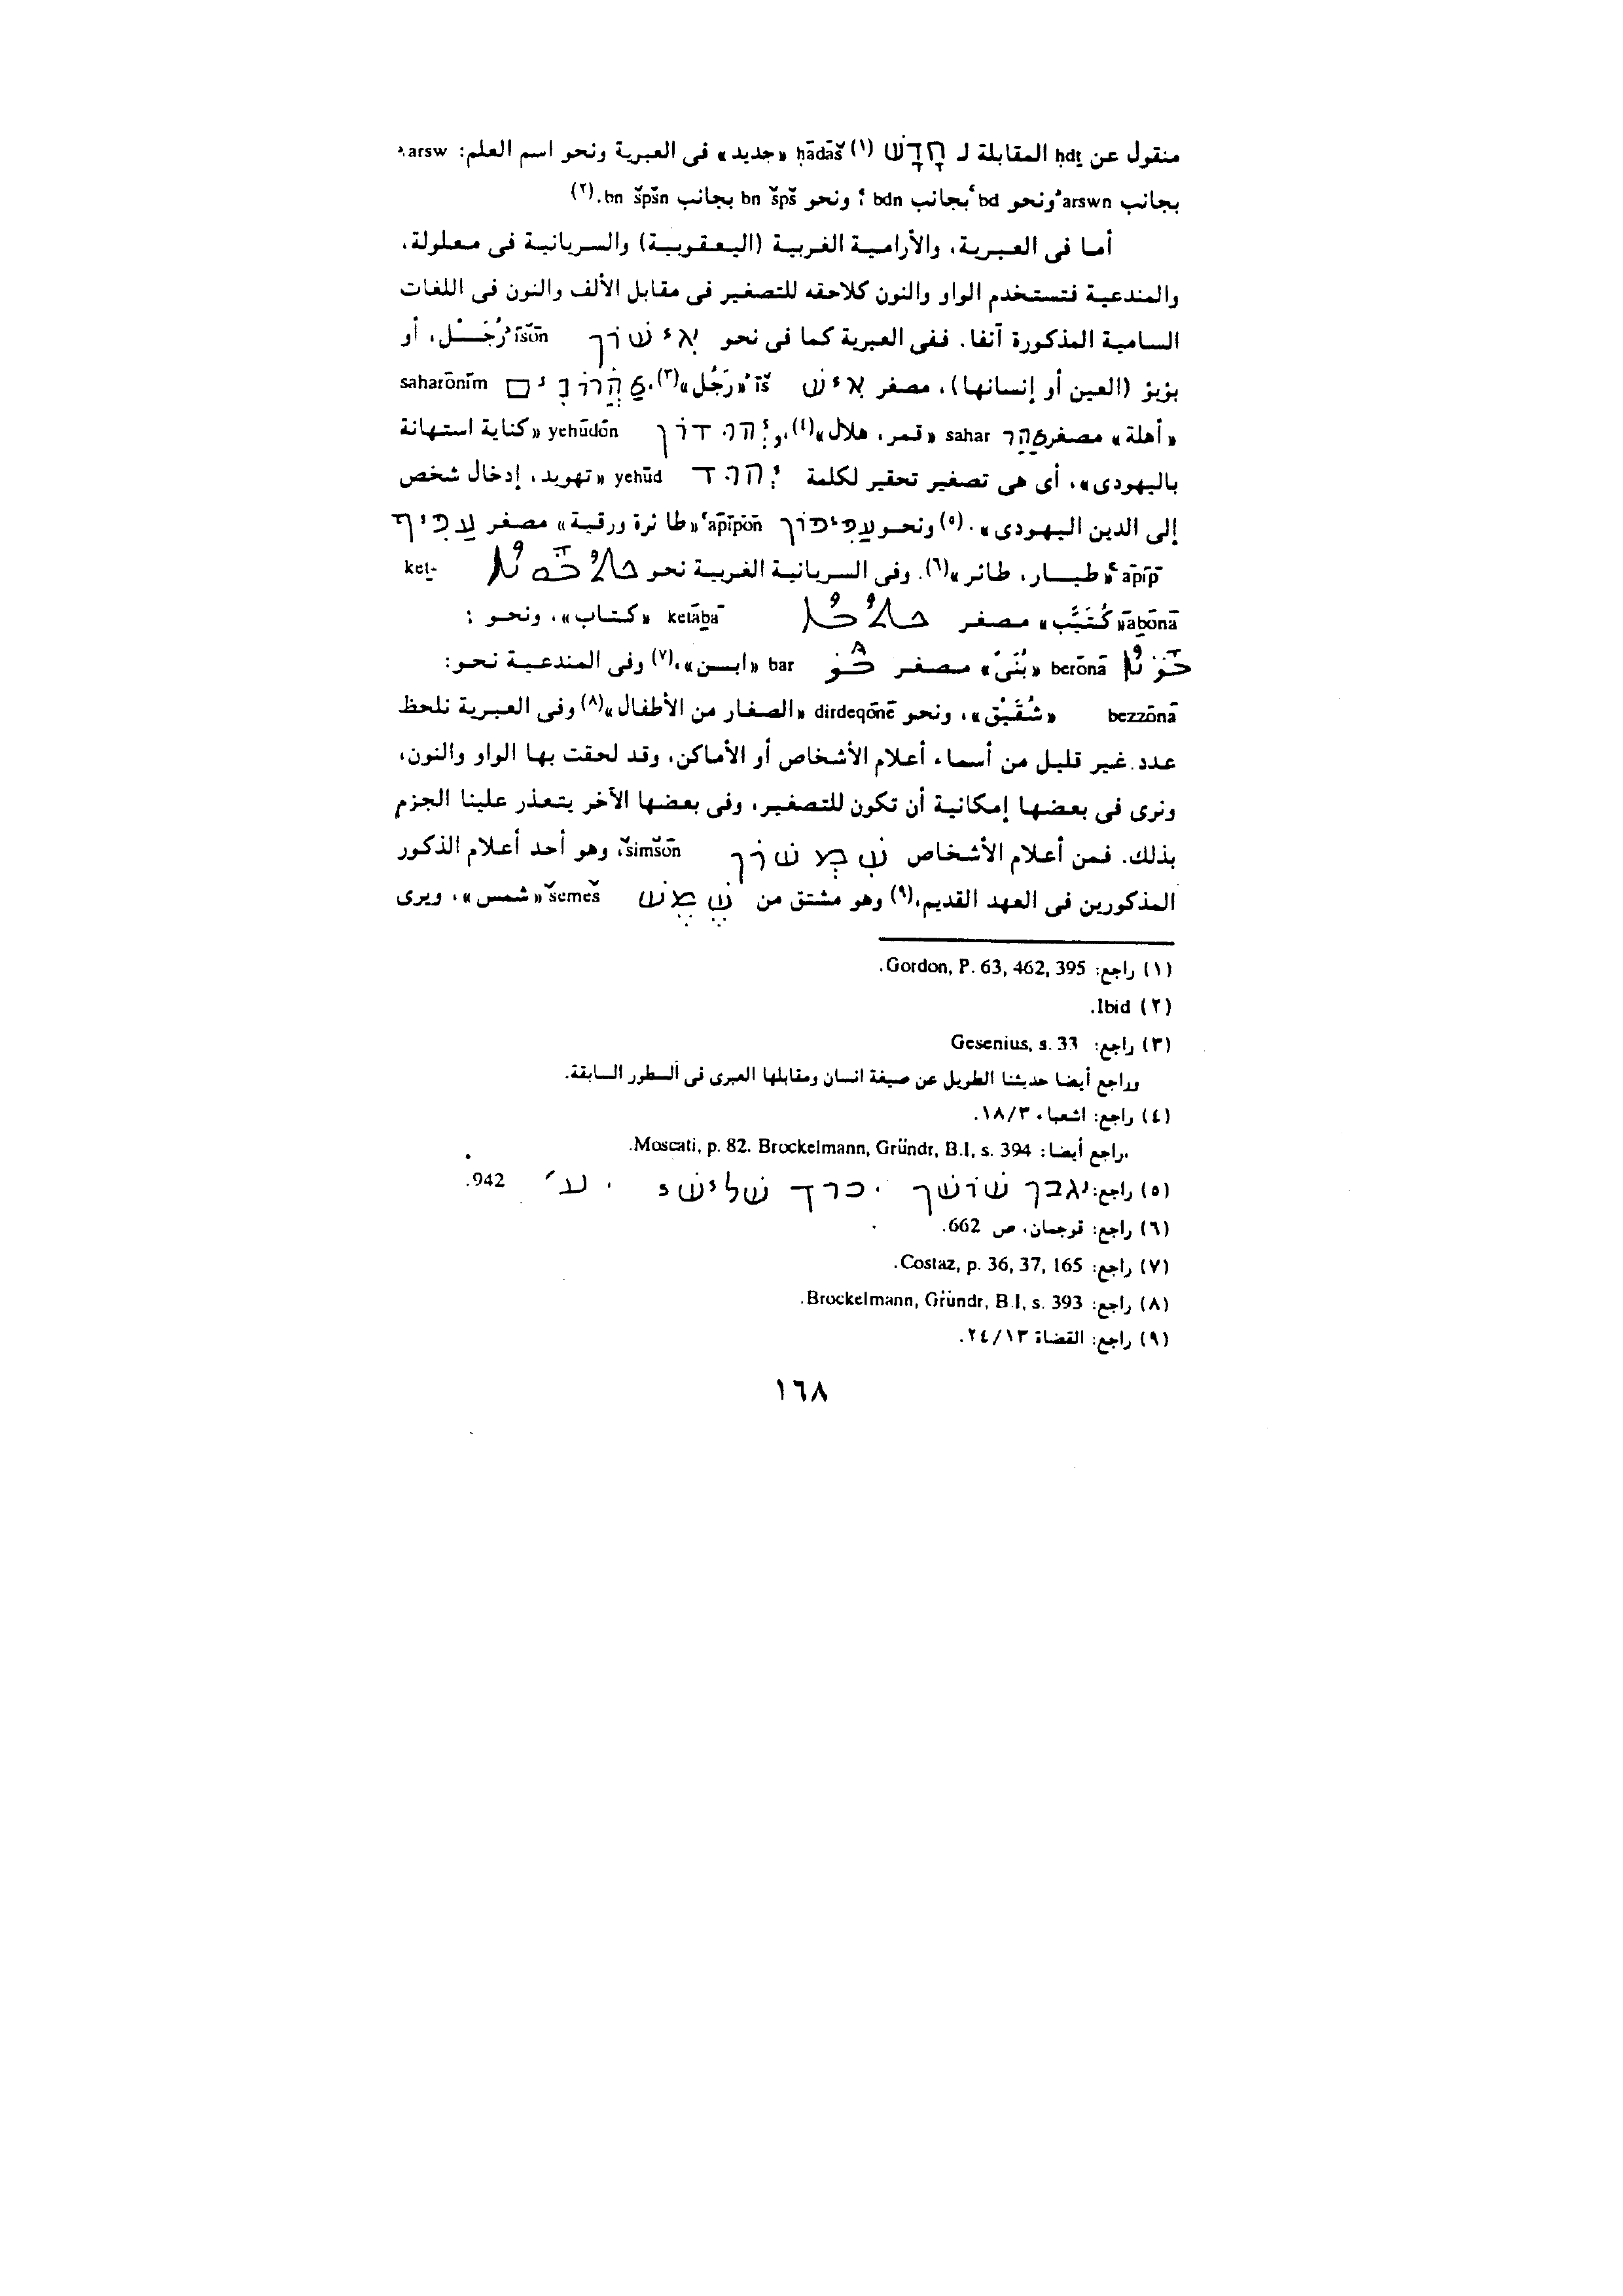 منقول عن ḥdṯ المقابلة لـ חָדָשׁ (١) ḥādāš «جديد» فى العبرية ونحو اسم العلم: ʾarsw،
بجانب ʾarswn ونحو ʿbd بجانب ʿbdn ؛ ونحو bn špš بجانب bn špšn.(٢)
أما فى العبرية، والأرامية الغربية (اليعقوبية) والسريانية فى معلولة،
والمندعية فتستخدم الواو والنون كلاحقه للتصغير فى مقابل الألف والنون فى اللغات
السامية المذكورة آنفا. ففى العبرية كما فى نحو אִישׁוֹן ʾīšōn رُجَـــيْل، أو
بؤبؤ (العين أو إنسانها)، مصغر אִישׁ ʾīš «رَجُل»(٣)، שַׂהֲרוֹנִים saharōnīm
«أهلة» مصغر סַהַר sahar «قمر، هلال»(٤)، و יְהוּדוֹן yehūdōn «كناية استهانة
باليهودى»، أى هى تصغير تحقير لكلمة יְהוּד yehūd «تهويد، إدخال شخص
إلى الدين اليهودى».(٥) ونحو עֲפִיפוֹן ʿapīpōn «طائرة ورقية» مصغر עָפִיף
ʿāpīp «طيـــار، طائر»(٦). وفى السريانية الغربية نحو ket-
ābōnā «كُتَيِّب» مصغر ܟܬܳܒܳܐ ketābā «كتاب»، ونحو :
berōnā «بُنَىّ» مصغر ܒܰܪ bar «ابـــن»،(٧) وفى المندعية نحو:
bezzōnā «شُقَيْق»، ونحو dirdeqōnē «الصغار من الأطفال»(٨) وفى العبرية نلحظ
عدد غير قليل من أسماء أعلام الأشخاص أو الأماكن، وقد لحقت بها الواو والنون،
ونرى فى بعضها إمكانية أن تكون للتصغير، وفى بعضها الآخر يتعذر علينا الجزم
بذلك. فمن أعلام الأشخاص שִׁמְשׁוֹן šimšōn، وهو أحد أعلام الذكور
المذكورين فى العهد القديم،(٩) وهو مشتق من שֶׁמֶשׁ šemeš «شمس»، ويرى
(١) راجع: Gordon, P. 63, 462, 395.
(٢) Ibid.
(٣) راجع: Gesenius, s. 33
وراجع أيضا حديثنا الطويل عن صيغة انسان ومقابلها العبرى فى السطور السابقة.
(٤) راجع: اشعياء ١٨/٣.
راجع أيضا: Moscati, p. 82. Brockelmann, Gründr, B.I, s. 394.
(٥) راجع: שושן . כרך שלישי . ע׳ 942.
(٦) راجع: قوجمان، ص 662.
(٧) راجع: Costaz, p. 36, 37, 165.
(٨) راجع: Brockelmann, Gründr, B.I, s. 393.
(٩) راجع: القضاة ٢٤/١٣.
١٦٨